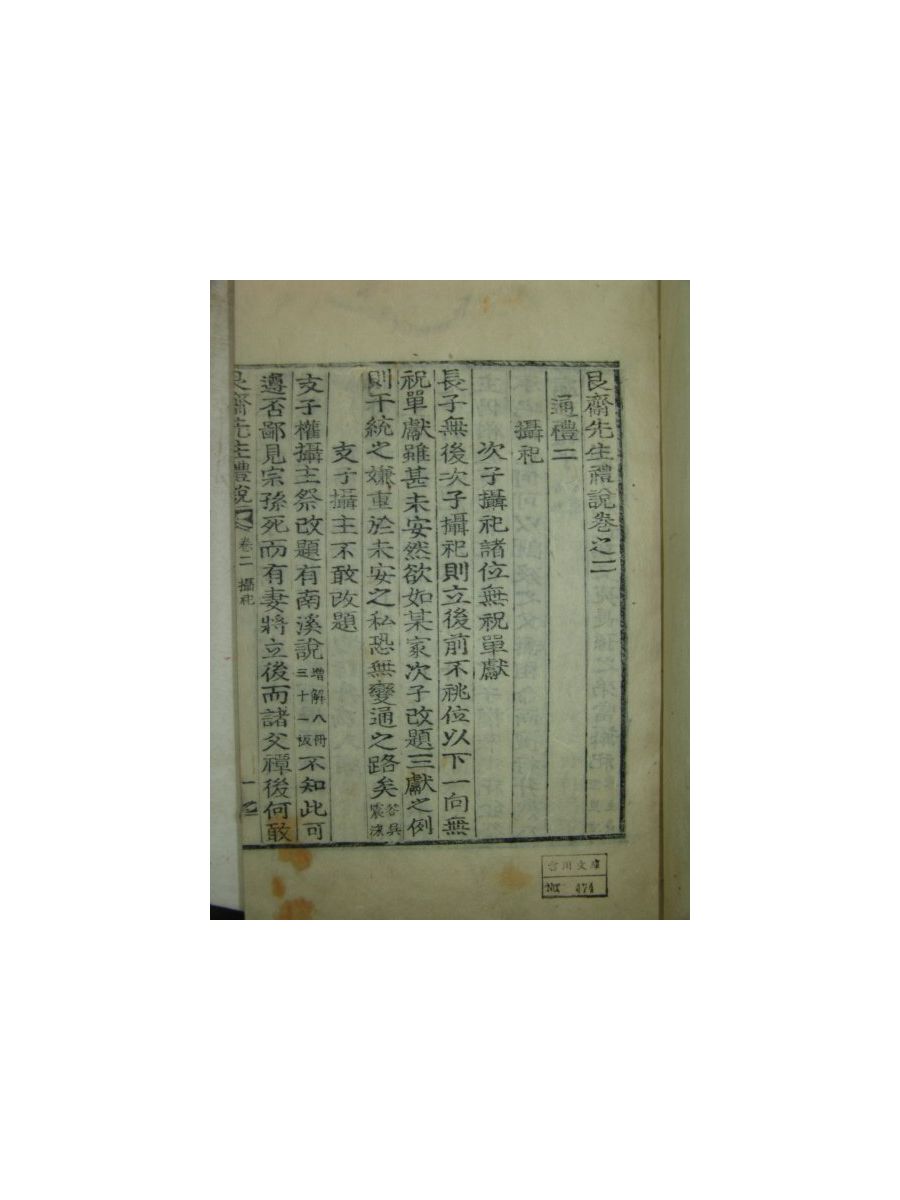 艮齋先生禮說卷之二
通禮二
攝祀
次子攝祀諸位無祝單獻
長子無後次子攝祀則立後前不祧位以下一向無
祝單獻雖甚未安然欲如某家次子改題三獻之例
則干統之嫌重於未安之私恐無變通之路矣答吳震泳
支子攝主不敢改題
支子權攝主祭改題有南溪說增解八冊三十一板不知此可
遵否鄙見宗孫死而有妻將立後而諸父禫後何敢
艮齋先生禮說
卷二 攝祀
一
文庫
474